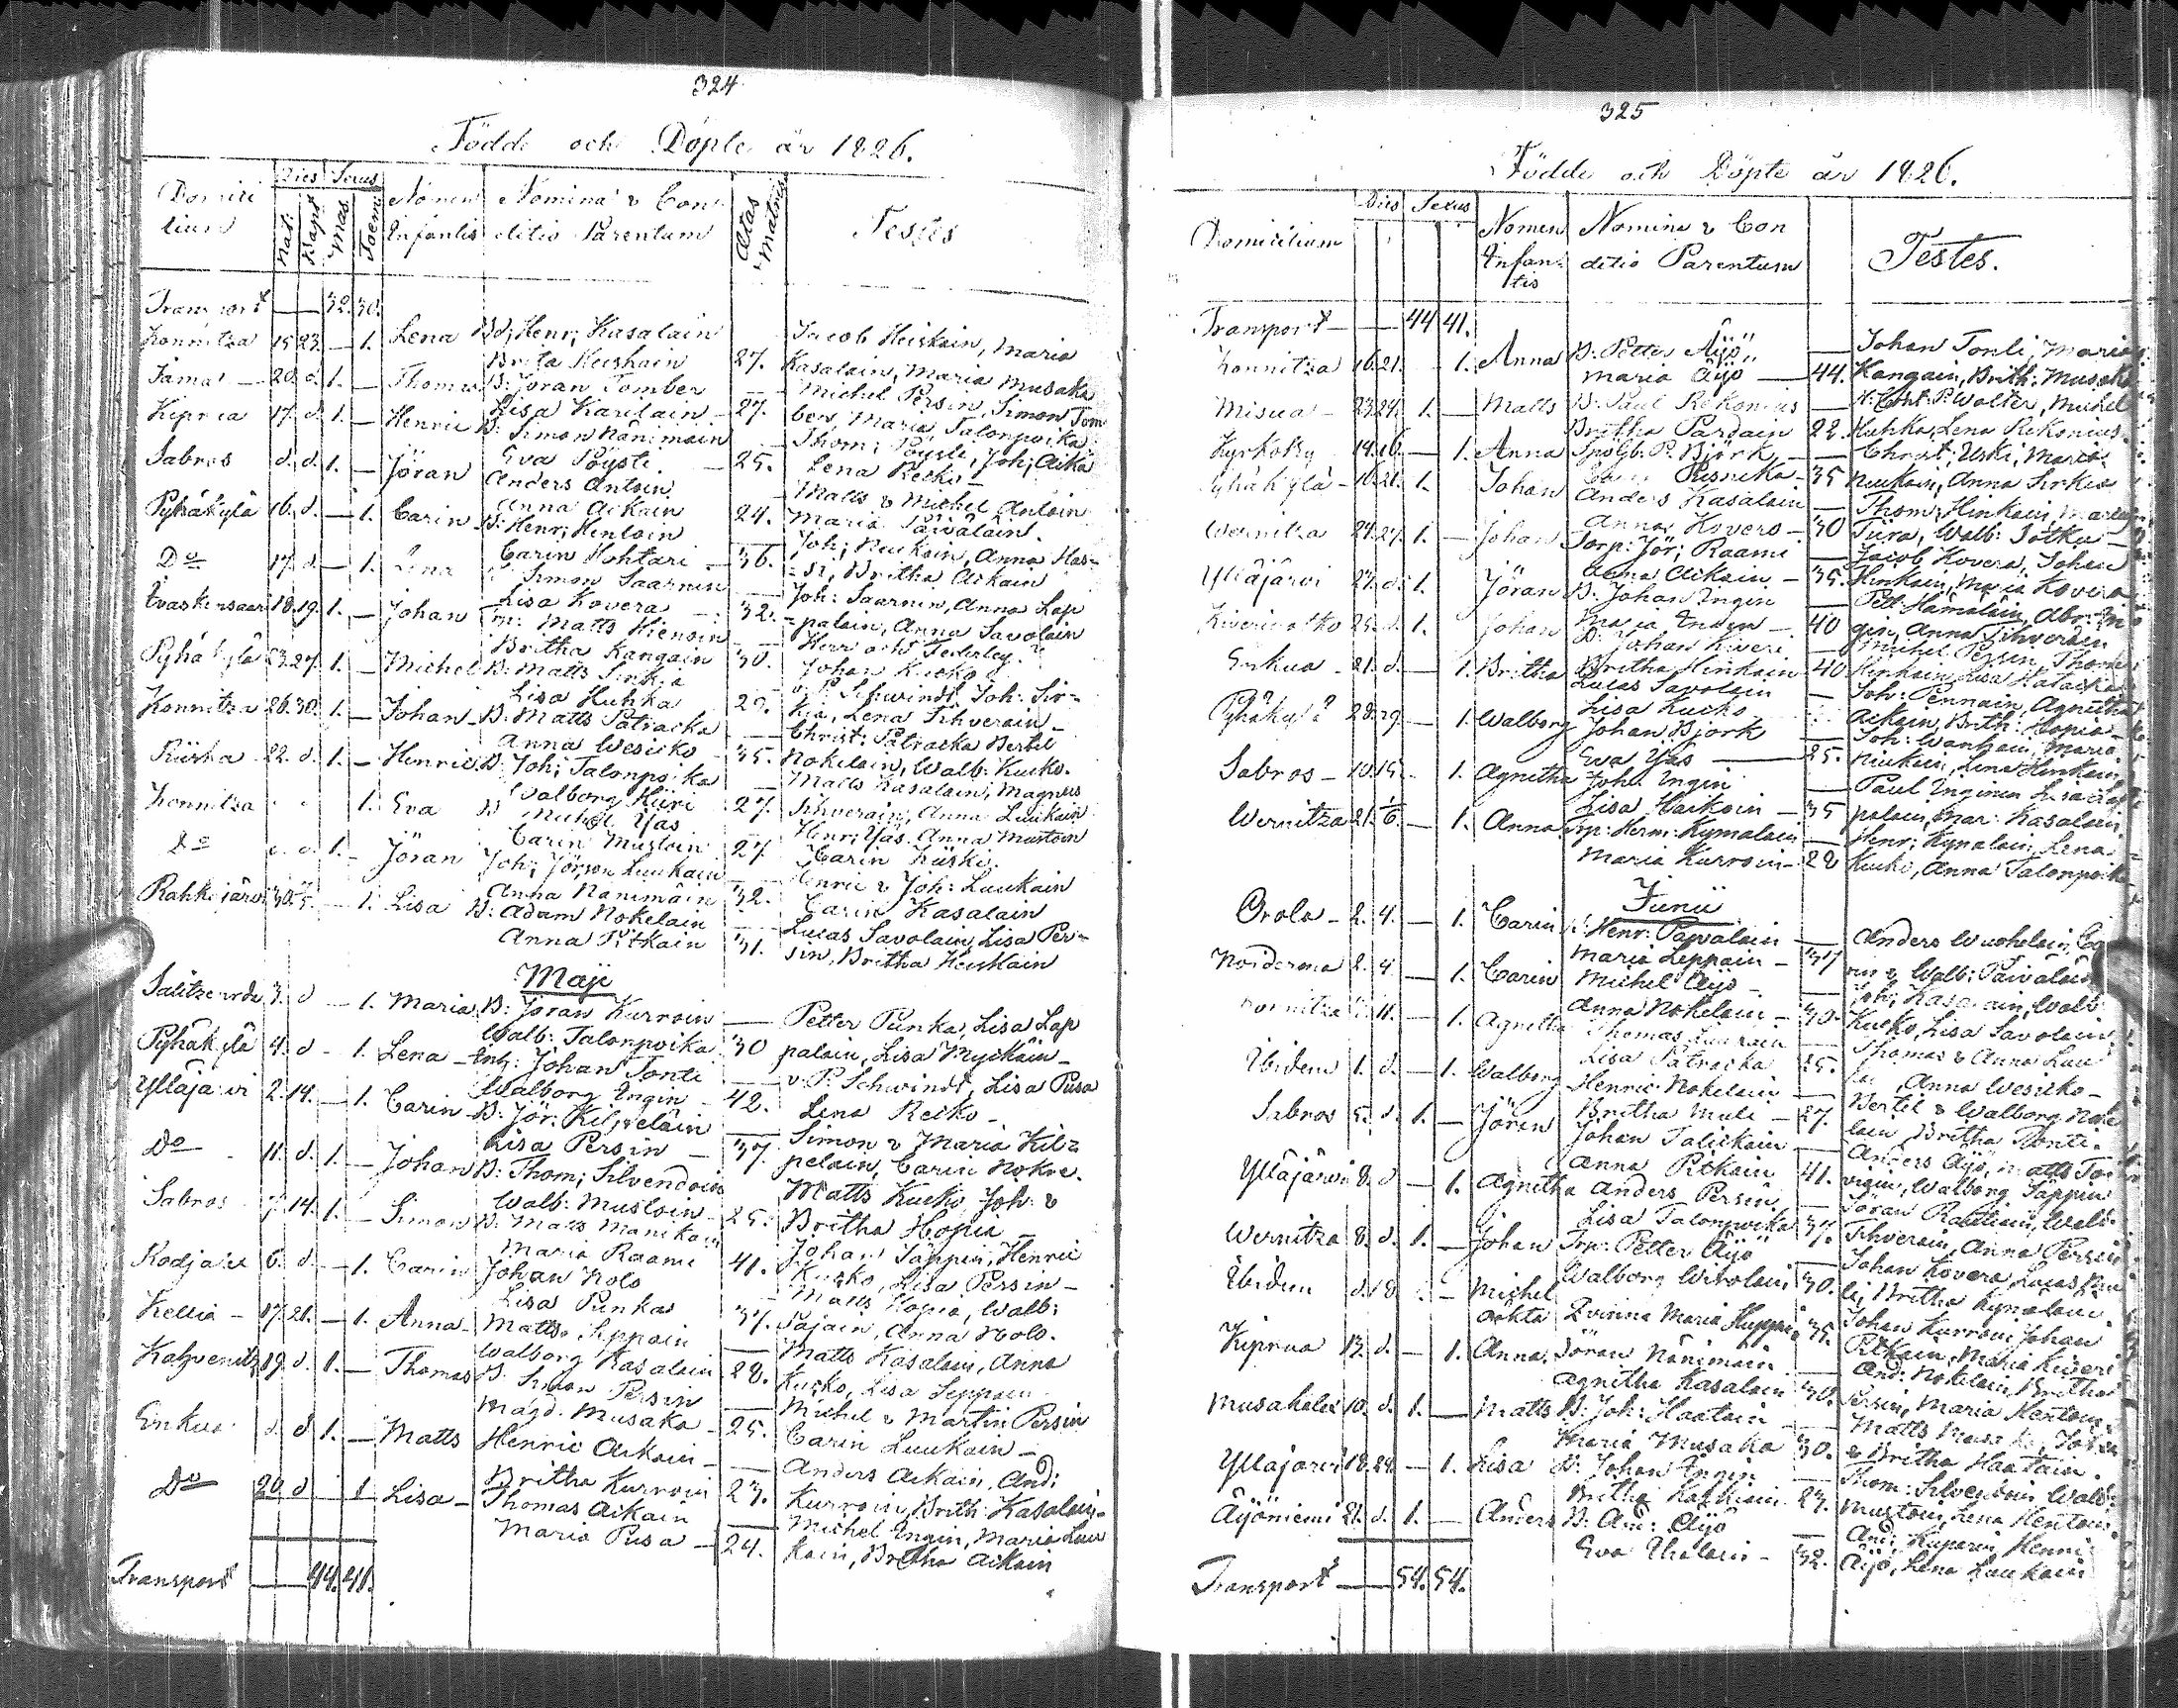 324
Födde och Döpte år 1826.
Domicilium Dies Sexus Nomen Infantis Nomina & Conditio Parentum Ætas Matris Testes
Nat: Bapt Mas. Foem:
Transport — 32. 30.
Konnitza 15 23. — 1. Lena B: Henr; Kasalain Jacob Heiskain, Maria
Brita Heiskain 27. Kasalain, Maria Musaka
20. d. 1. — Thomas B: Jöran Tomber — Michel Persin, Simon Tom
Lisa Karilain — 27. ber, Maria Talonpoika
Kiprua 17. d. 1. — Henric B: Simon Nänimäin — Thom; Pöysti, Joh; Aikä
Eva Pöysti. — 25. Lena Recko —
Sabros d. d. 1. — Jöran Anders Antoin — Matts & Michel Antoin
Anna Aikain 24. Maria Päivälain.
Pyhäkylä 16. d. — 1. Carin B: Henr; Hentoin — Joh; Neukain, Anna Has-
Carin Hohtari — 36. Britha Aikain
Do 17. d. — 1. Lena Simon Saarnin — Joh: Saarnin, Anna Lap
Lisa Kovera — 32. =palain, Anna Savolain
18. 19. 1. — Johan Matts Hienoin Herr och Sederley.
Britha Kangain 30. Johan Kucko
Pyhäkylä 23. 27. 1. — Michel B: Matts Sirkia v. P. Schwindt, Joh: Sir-
Lisa Huhka 29. kia, Lena Tihverain —
Konnitza 26. 30. 1. — Johan B: Matts Patracka — Christ: Patracka Bertil
Anna Wesicko — 35. Nokelain, Walb: Kucko.
22. d. 1. — Henric B: Joh; Talonpoika — Matts Kasalain, Magnus
Walborg Kiiri 27. Tihverain, Anna Luukain
Konnitza 1. Eva Michel Yäs Henr; Yäs. Anna Mustoin
Carin Mustoin 27 Carin
Do d. d. 1. — Jöran Joh; Jörson Luukain Henric & Joh: Luukain
Anna Nänimäin 32. Carin Kasalain
Rahkajärvi 30. 5. — 1. Lisa B: Adam Nokelain Lucas Savolain, Lisa Per-
Anna Pitkain 31. sin, Britha Heiskain
Maji
3. d — 1. Maria B: Jöran Kurroin — Petter Punka, Lisa Lap
Walb: Talonpoika 30 palain, Lisa Myckäin —
Pyhäkylä 4. d — 1. Lena Johan Tonti — v. P. Schwindt, Lisa Pusa
Walborg Ingin — 42. Lena Recko —
Ylläjärvi 2. 14. — 1. Carin B: Jör: Kilpeläin — Simon & Maria Kil=
Lisa Persin — 37. peläin, Carin
Do 11. d. 1. — Johan B: Thom; Silvendoin Matts Kucko Joh: &
Walb: Mustoin — 25. Britha Hopia —
Sabros 7. 14. 1. — Simon B: Matts Johan Säppin, Henric
Maria Raami 41. Kucko, Lisa Persin —
6. d. — 1. Carin Johan Nolo — Matts Hopia, Walb:
Lisa Punkas 37. Pajain, Anna Nolo.
Kellia — 17. 21. — 1. Anna — Matts Seppäin — Matts Kasalain, Anna
Walborg Kasalain 28. Kucko, Lisa Seppäin
19. d. 1. — Thomas B: Simon Persin — Michel & Martin Persin
Magd: Musaka — 25. Carin Luukain —
Enkua d. d 1. — Matts Henric Aikain — Anders Aikain, And:
Britha Kurroin 23. Kurroin, Brith: Kasalain.
Do 20. d 1 Lisa — Thomas Aikain — Michel Ingin, Maria Luu
Maria Pusa — 24. kain, Britha Aikain
Transport — 44. 41.
325
Födde och Döpte år 1826.
Domicilium Dies Sexus Nomen Infantis Nomina & Conditio Parentum Testes.
Transport — — 44 41.
Konnitza 16. 21. — 1. Anna B: Petter Äijö — Johan Tonti, Maria
Maria Äijö — 44. Kangain, Brith: Musaka
Misua — 23. 24. 1. — Matts B: Paul Rekonius — P. Walter, Michel
Britha Pardain 22. Huhka, Lena Rekonius.
Kyrkoby 14. 16. — 1. Anna P. Björk — Christ: Uski, Maria
35 Neukain, Anna Sirkia
Pyhäkylä — 16. 21. 1. Johan Anders Kasalain — Thom: Hinkain,
Anna Kovero — 30 Tiira, Walb: Sotku —
Wernitza 24. 27. 1. — Johan Torp: Jör; Raami — Jacob Kovera, Johan
Anna Aikain — 35. Hinkain, Maria Kovera
Ylläjärvi 27. d. 1. Jöran B: Johan Ingin — Pett: Hämäläin, Abr: In
Maria 40 gin, Anna Tihverain
25. d. 1. Johan B: Johan Kiveri — Michel Persin, Thom:
Britha Hinkain 40 Hinkain, Lisa
Enkua — 21. d. — 1. Britha Lucas Savolain — Joh: Pennain, Agnitha
Lisa Kucko Aikain, Brith: Hopia —
Pyhäkylä 28. 29. — 1. Walborg Johan Björk — Joh: Wanhain, Maria
Eva Yäs — 25. Neukain, Lena Hinkain
Sabros — 10. 15. — 1. Agnitha Joh: Ingin — Paul Inginen
Lisa Haikoin — 35 palain, Mar: Kasalain,
Wernitza 21. 1/6. — 1. Anna Torp: Herm: Kymalain — Henr; Kymalain, Lena
Maria Kurroin — 28 Kucki, Anna Talonpoika
Junii
Orola — 2. 4. — 1. Carin B: Henr: Päivälain — Anders
Maria Leppäin — 37 rin & Walb: Päiväläin
2. 4. — 1. Carin Michel Äijö — Joh; Kasalain, Walb:
Anna Nokelain — 30. Kucko, Lisa Savolain
Konnitza 11. — 1. Agnitha Thomas Luukain — Thomas & Anna Luu
Lisa Patracka 25. Anna Wesicko —
Ibidem 1. d. — 1. Walborg Henric Nokelain — Bertil & Walborg Noke
Britha Muli — 27. lain, Britha Tonti.
Sabros 5. d. 1. — Jöran Johan Talickain — Anders Äijö, Matts
Anna Pitkain 41. Walborg Säppin
Ylläjärvi 8. d — 1. Agnitha Anders Persin — Jöran Walb:
Lisa Talonpoika 37. Tihverain, Anna Persin
Wernitza 8. d. 1. — Johan Trp: Petter Äijö — Johan Kovera, Lucas
Walborg 30. Britha Kymalain.
Ibidem d. 8. — Michel Johan Kurroin, Johan
oäkta Qvinna Maria Huppi 35. Pitkain, Maria Kiveri
Kiprua 13. d. — 1. Anna. Jöran Nänimäin — And: Nokelain, Britha
Agnitha Kasalain 30. Persin, Maria Hentoin
10. d. 1. — Matts B: Joh: Haatain — Matts Musaka,
Maria Musaka 30. & Britha Haatain.
Ylläjärvi 18. 24. — 1. Lisa B: Johan Ingin — Thom: Silvendoin, Walb:
Britha 27. Mustoin, Lena Hentoin.
Äijöniemi 21. d. 1. — Anders B: And: Äijö — And: Huparin, Henric
Eva 32. Äijö, Lena Luukain
Transport — 54. 54.